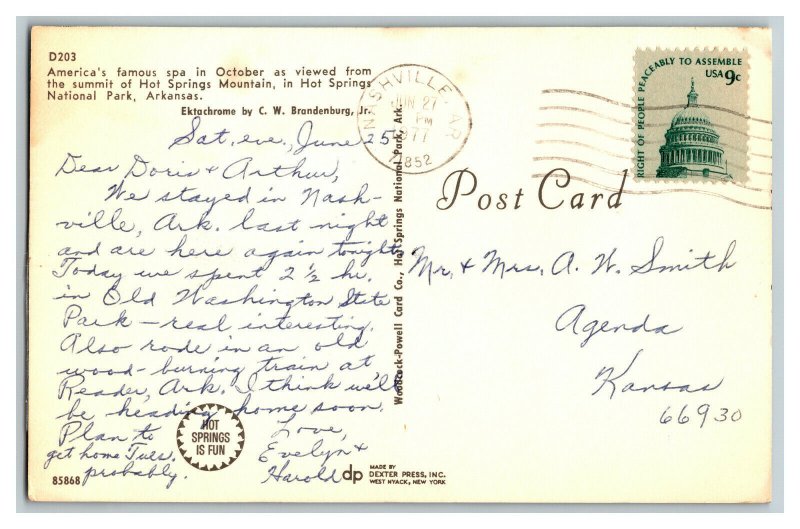 D203
America's famous spa in October as viewed from
the summit of Hot Springs Mountain, in Hot Springs
National Park, Arkansas.
Ektachrome by C. W. Brandenburg, Jr.
Sat. eve., June 25
Dear Doris & Arthur,
We stayed in Nash-
ville, Ark. last night
and are here again tonight.
Today we spent 2 ½ hr.
in Old Washington State
Park – real interesting.
Also rode in an old
wood-burning train at
Reader, Ark. I think we'll
be heading home soon.
Plan to
get home Tues.
probably.
Love,
Evelyn &
Harold
HOT
SPRINGS
IS FUN
85868
Woodcock-Powell Card Co., Hot Springs National Park, Ark.
dp
MADE BY
DEXTER PRESS, INC.
WEST NYACK, NEW YORK
NASHVILLE, AR
JUN 27
PM
1977
71852
RIGHT OF PEOPLE PEACEABLY TO ASSEMBLE
USA 9c
Post Card
Mr. & Mrs. A. W. Smith
Agenda
Kansas
66930